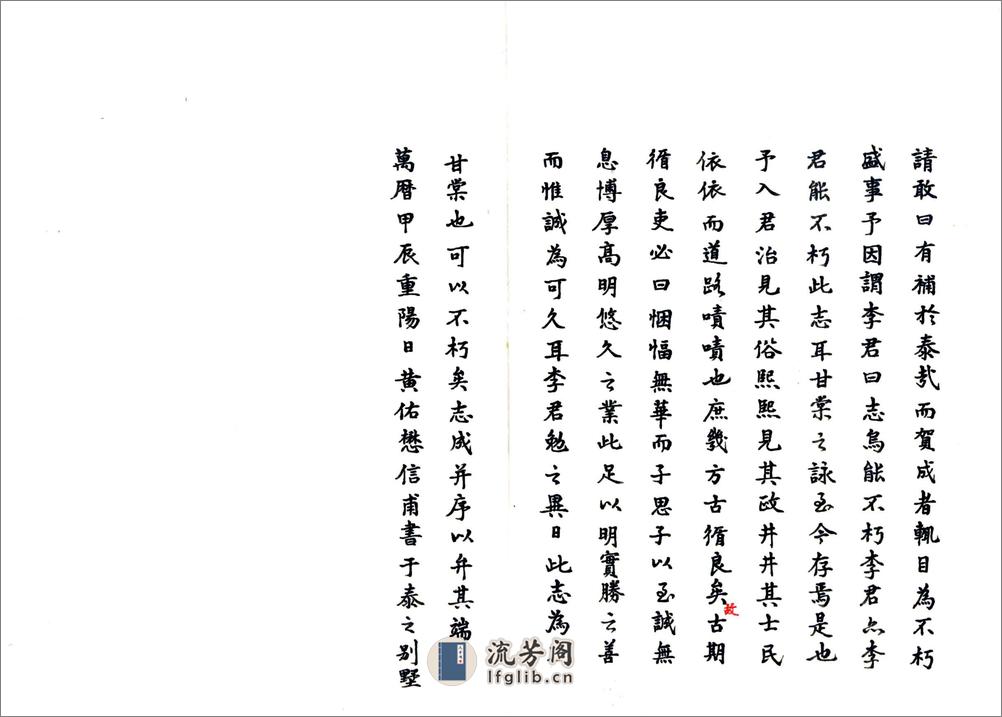 請敢曰有補於泰哉而賀成者輒目為不朽
盛事予因謂李君曰志烏能不朽李君亦李
君能不朽此志耳甘棠之詠至今存焉是也
予入君治見其俗熙熙見其政井井其士民
依依而道路嘖嘖也庶幾方古循良矣古期
故
循良吏必曰悃愊無華而子思子以至誠無
息博厚高明悠久之業此足以明實勝之善
而惟誠為可久耳李君勉之異日此志為
甘棠也可以不朽矣志成并序以弁其端
萬暦甲辰重陽日黄佑懋信甫書于泰之别墅
流芳阁
lfglib.cn